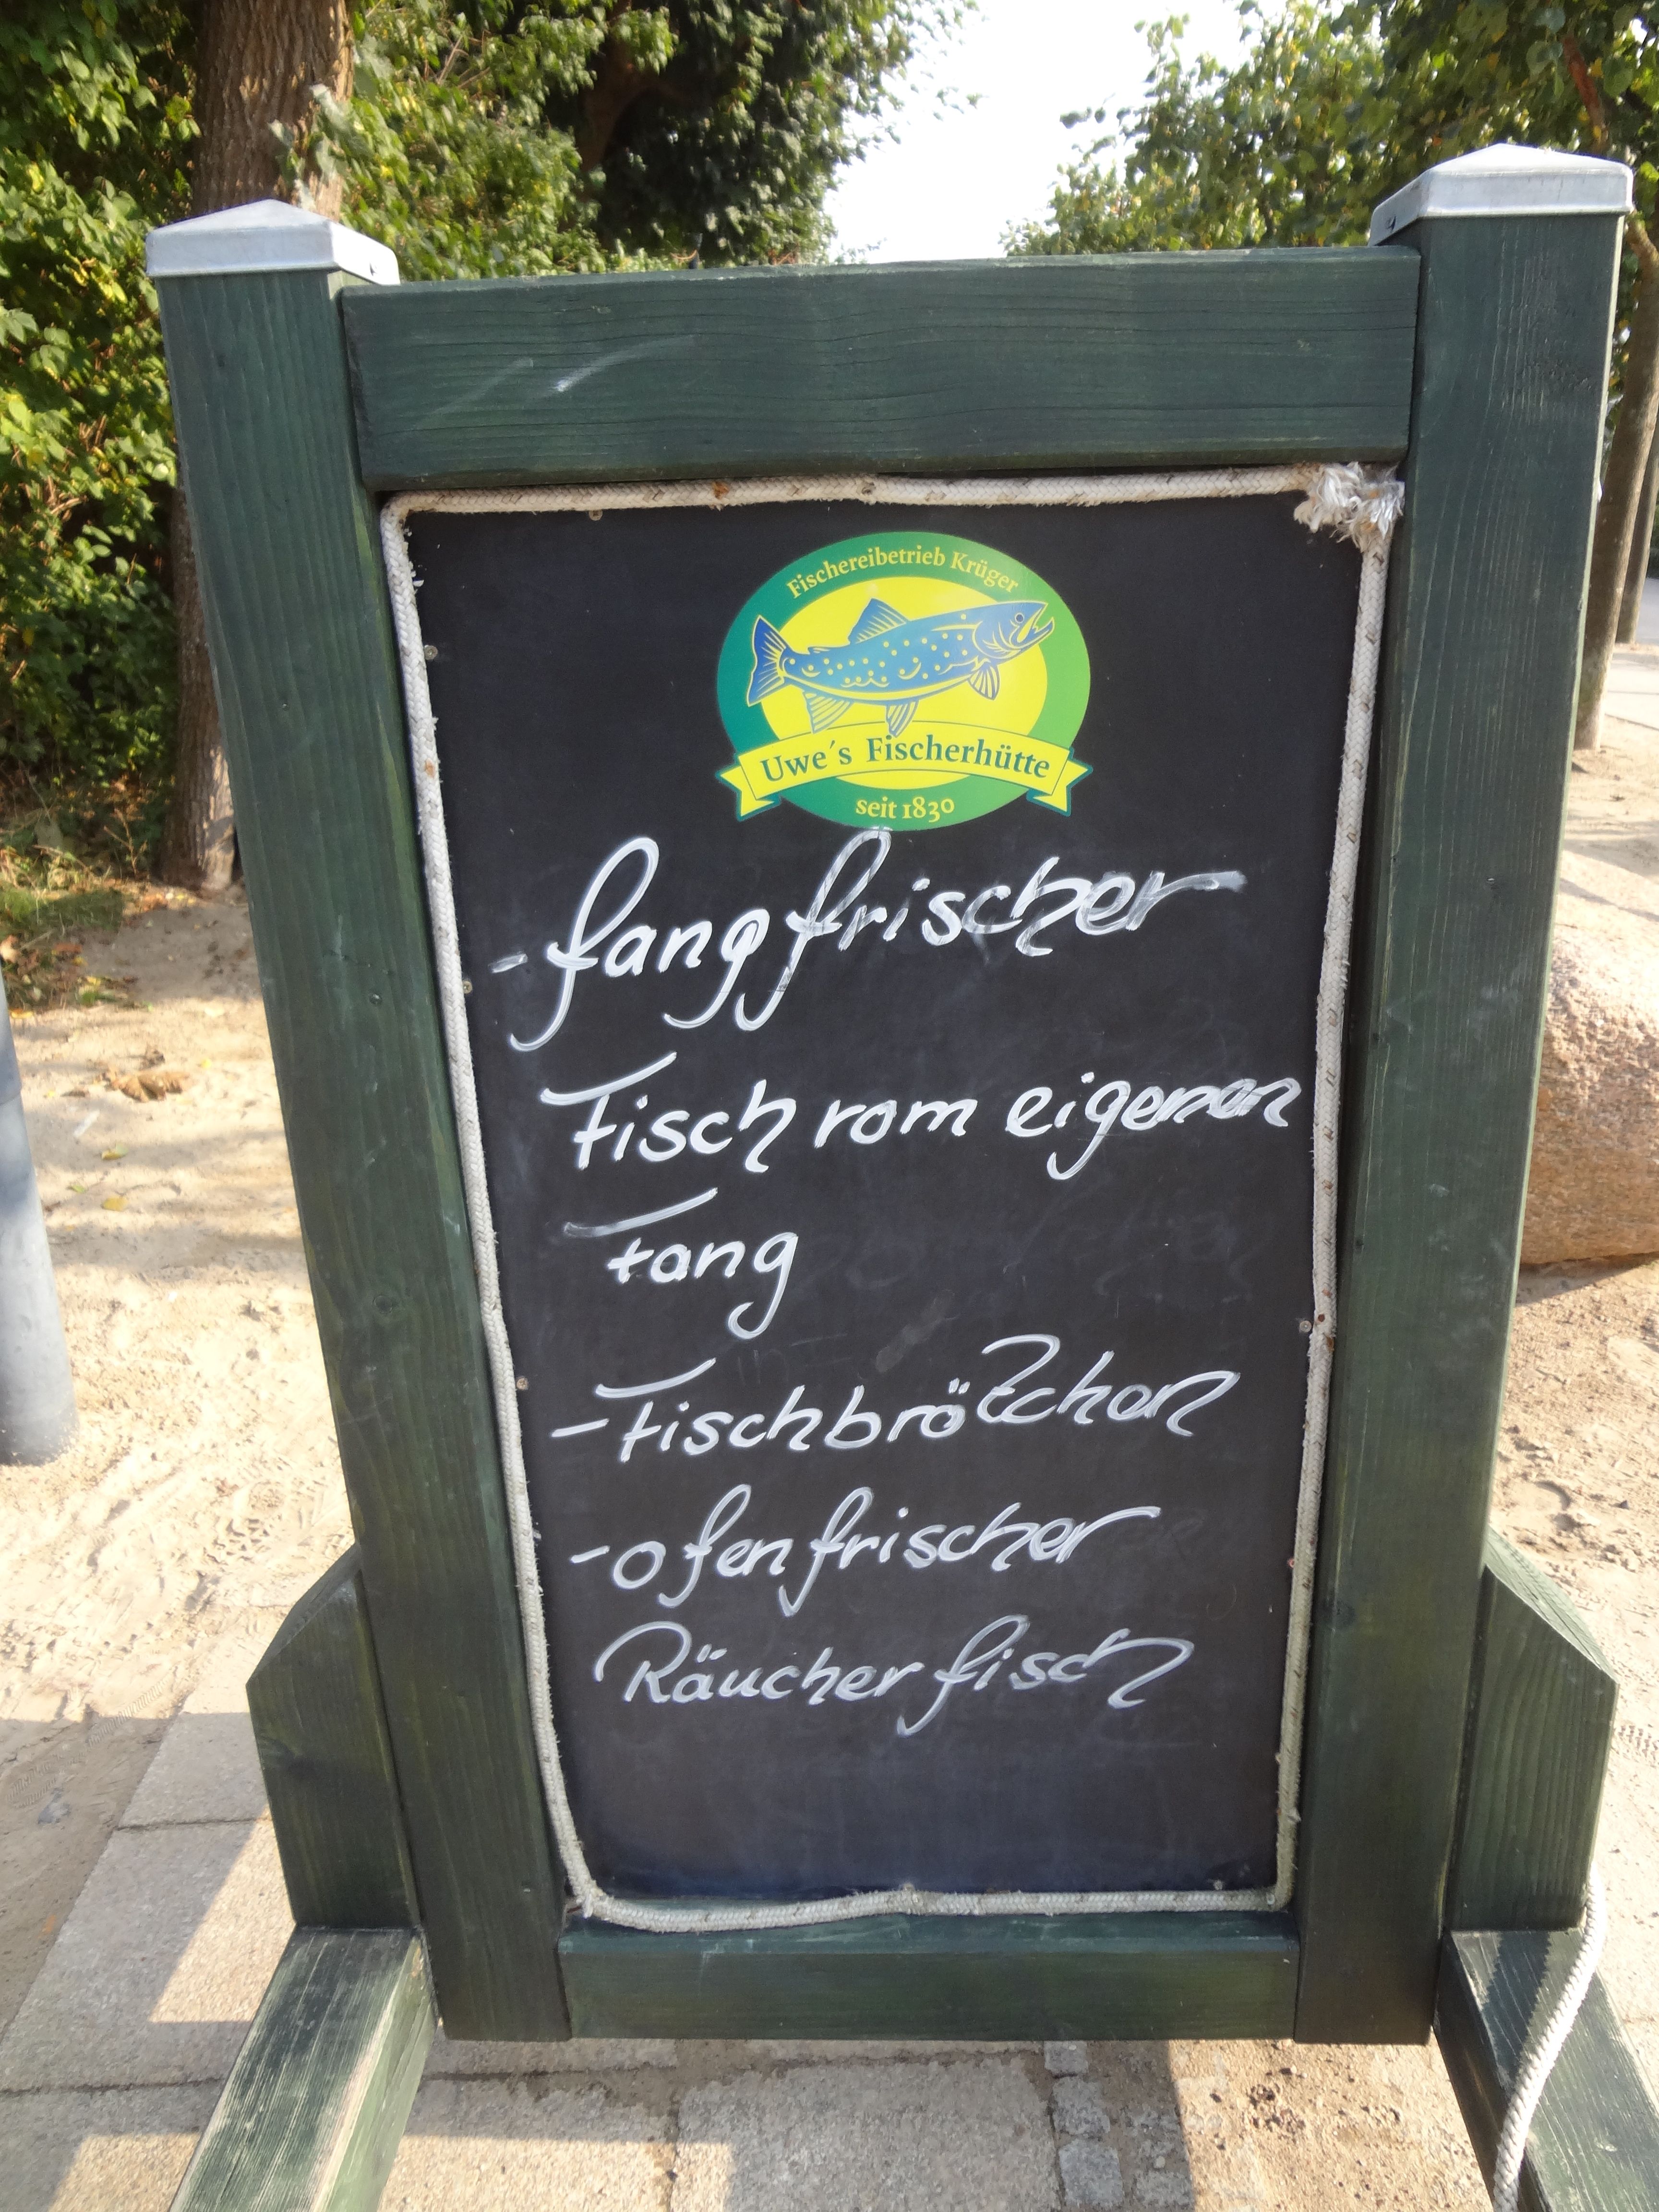 Fischereibetrieb Krüger
Uwe´s Fischerhütte
seit 1830
- fangfrischer
Fisch vom eigenen
Fang
- Fischbrötchen
- ofenfrischer
Räucherfisch